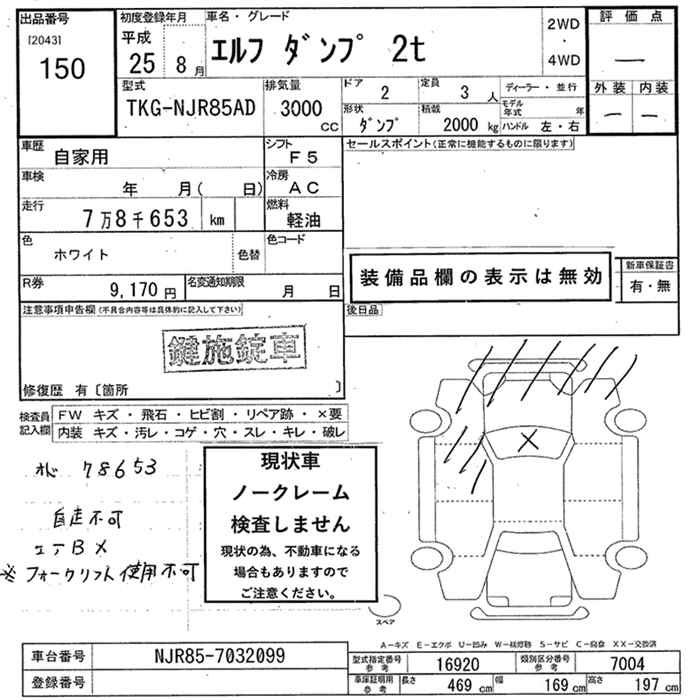 出品番号 初度登録年月 車名・グレード 評価点
[2043] 平成 2WD
150 25 8月 エルフ ダンプ 2t ・ 4WD —
型式 排気量 ドア 2 定員 3人 ディーラー・並行 外装 内装
TKG-NJR85AD 3000cc 形状 ダンプ 積載 2000kg モデル年式 年 — —
ハンドル 左・右
車歴 自家用 シフト F5 セールスポイント(正常に機能するものに限ります)
車検 年 月( 日) 冷房 AC
走行 7万8千653 km 燃料 軽油
色 ホワイト 色替 色コード
装備品欄の表示は無効 新車保証書
有・無
R券 9,170円 名変通知期限 月 日
注意事項申告欄(不具合内容等は具体的に記入して下さい) 後日品
鍵施錠車
修復歴 有〔箇所 〕
検査員記入欄 FW キズ・飛石・ヒビ割・リペア跡・×要
内装 キズ・汚レ・コゲ・穴・スレ・キレ・破レ
78653
現状車
ノークレーム
検査しません
現状の為、不動車になる
場合もありますので
ご注意ください。
自走不可
エアB×
※フォークリフト使用不可
×
スペア
A−キズ E−エクボ U−凹み W−補修跡 S−サビ C−腐食 XX−交換済
車台番号 NJR85-7032099 型式指定番号 参考 16920 類別区分番号 参考 7004
登録番号 車庫証明用 参考 長さ 469cm 幅 169cm 高さ 197cm